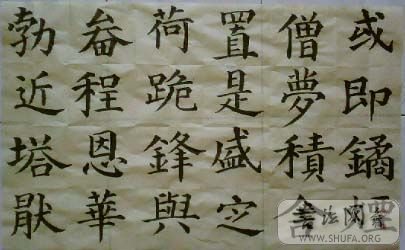 或即鐍
僧夢積
置是盛定
荷跪鋒與
畚程恩華
勃近塔猒
WWW.SHUFA.ORG